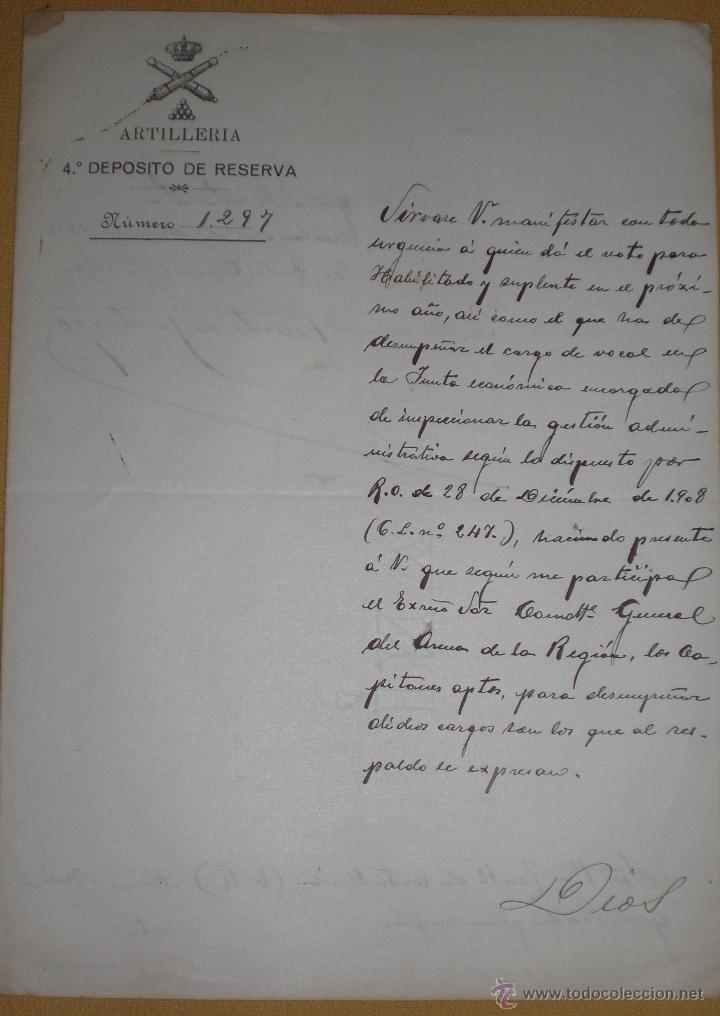 ARTILLERIA
4.º DEPOSITO DE RESERVA
Número 1.297
Sirvase V. manifestar con toda
urgencia á quien dá el voto para
Habilitado y suplente en el próxi-
mo año, así como el que ha de
desempeñar el cargo de vocal en
la Junta económica encargada
de inspeccionar la gestión admi-
nistrativa según lo dispuesto por
R.O. de 28 de Diciembre de 1.908
(C.L. nº 247.), haciendo presente
á V. que según me participa
el Exmô Sor Comdte General
del Arma de la Región, los Ca-
pitanes aptos, para desempeñar
dichos cargos son los que al res-
paldo se expresan.
Dios
www.todocoleccion.net